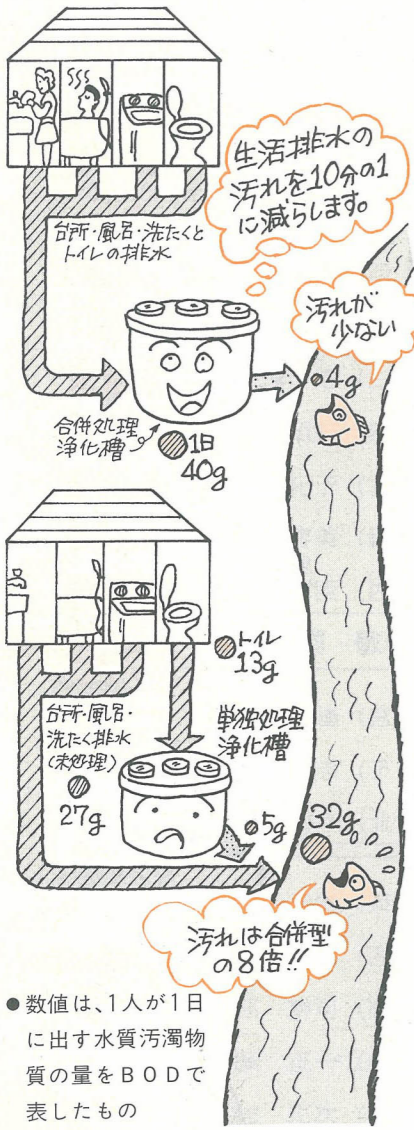 生活排水の
汚れを10分の1
に減らします。
台所・風呂・洗たくと
トイレの排水
汚れが
少ない
4g
合併処理
浄化槽
1日
40g
トイレ
13g
台所・風呂・
洗たく排水
(未処理)
27g
単独処理
浄化槽
5g
32g
汚れは合併型
の8倍!!
●数値は、1人が1日
に出す水質汚濁物
質の量をBODで
表したもの